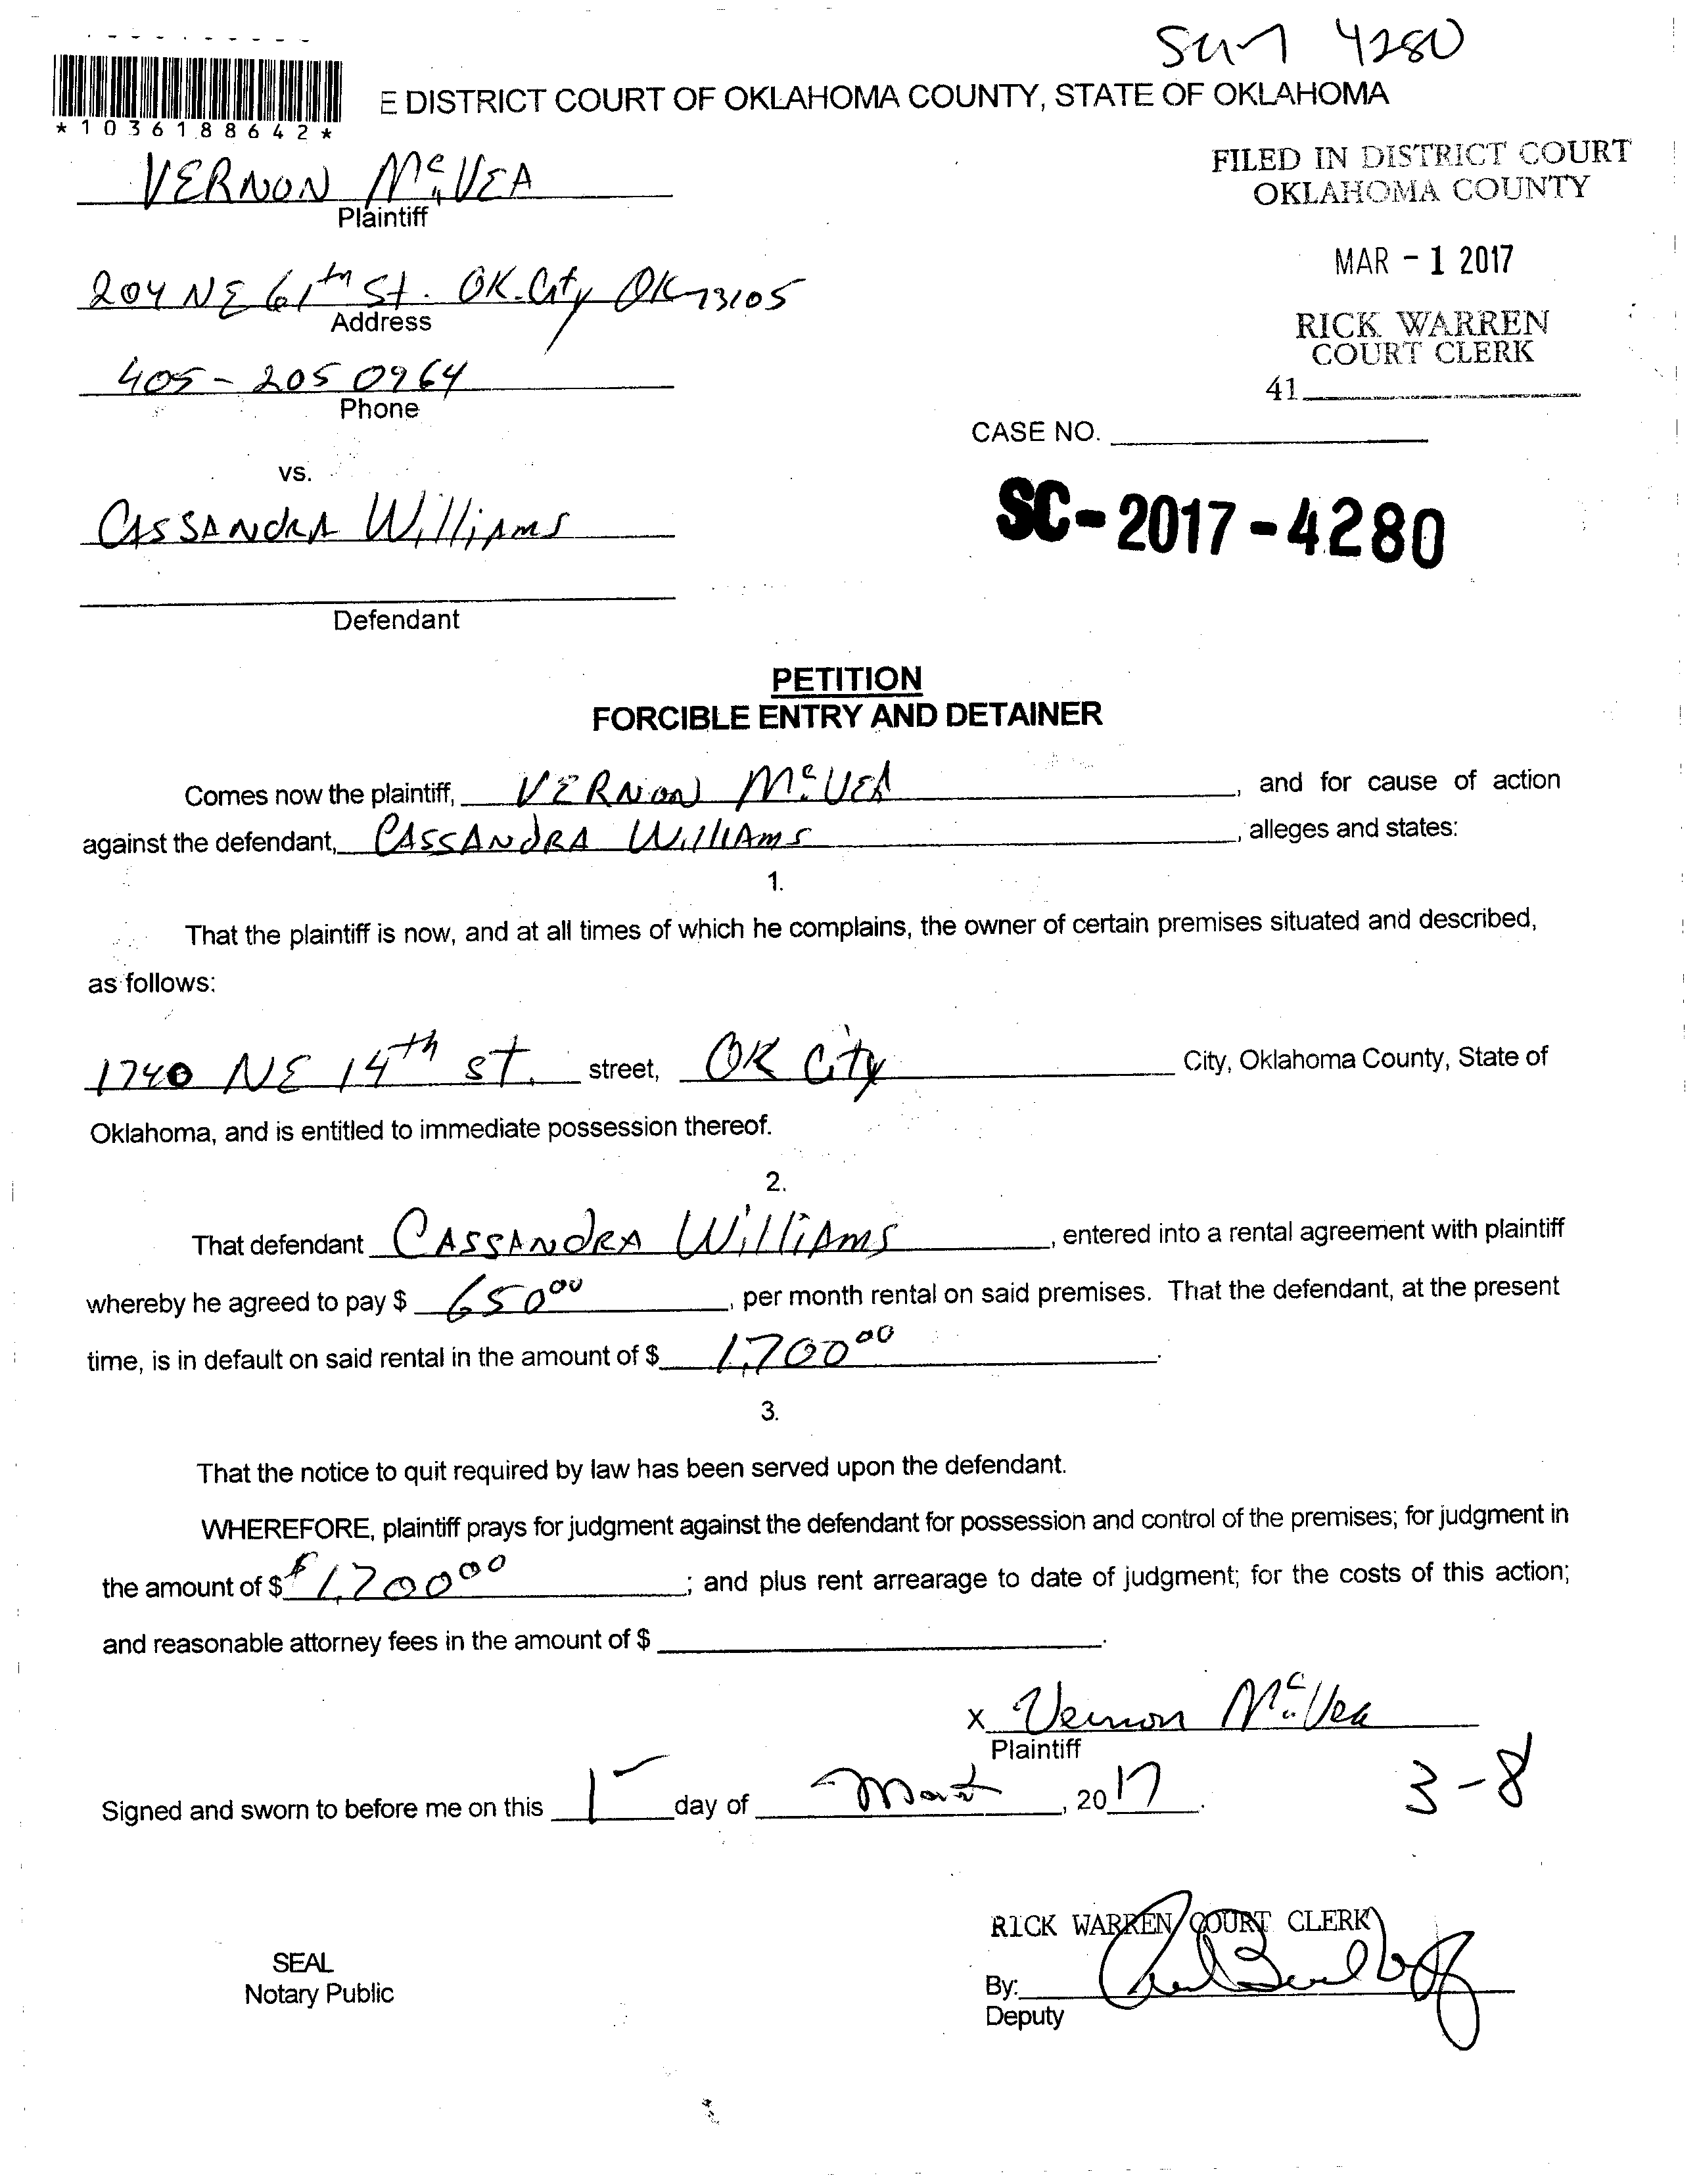 4280
E DISTRICT COURT OF OKLAHOMA COUNTY, STATE OF OKLAHOMA
*1036188642*
FILED IN DISTRICT COURT
OKLAHOMA COUNTY
VERNON McVEA
Plaintiff
MAR - 1 2017
204 NE 61th St. OK. City OK 73105
Address
RICK WARREN
COURT CLERK
405 - 205 0964
Phone
41
CASE NO.
vs.
CASSANdRA WilliAms
SC-2017-4280
Defendant
PETITION
FORCIBLE ENTRY AND DETAINER
Comes now the plaintiff, VERNON McVEA, and for cause of action
against the defendant, CASSANdRA WilliAms, alleges and states:
1.
That the plaintiff is now, and at all times of which he complains, the owner of certain premises situated and described,
as follows:
1740 NE 14th st. street, OK City City, Oklahoma County, State of
Oklahoma, and is entitled to immediate possession thereof.
2.
That defendant CASSANdRA WilliAms, entered into a rental agreement with plaintiff
whereby he agreed to pay $ 650 00, per month rental on said premises. That the defendant, at the present
time, is in default on said rental in the amount of $ 1,700 00.
3.
That the notice to quit required by law has been served upon the defendant.
WHEREFORE, plaintiff prays for judgment against the defendant for possession and control of the premises; for judgment in
the amount of $ $1,700 00; and plus rent arrearage to date of judgment; for the costs of this action;
and reasonable attorney fees in the amount of $ .
x Vernon McVea
Plaintiff
3-8
Signed and sworn to before me on this 1 day of March, 2017.
RICK WARREN COURT CLERK
SEAL
Notary Public
By:
Deputy